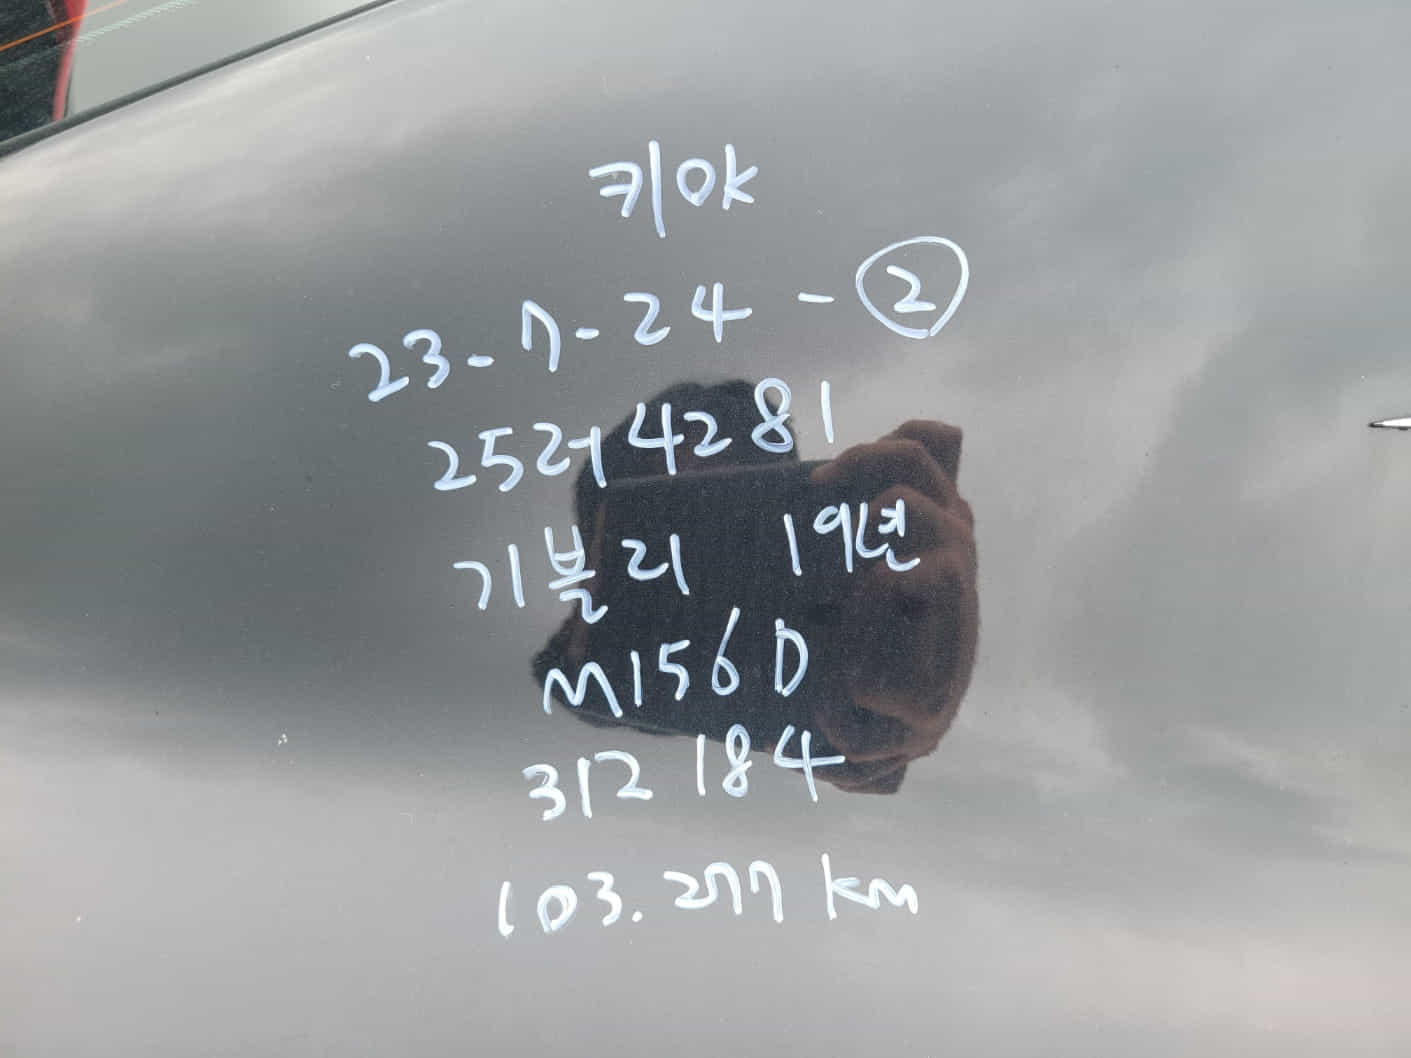 키OK
23-7-24-②
252너4281
기블리 19년
M156D
312184
103.277 km